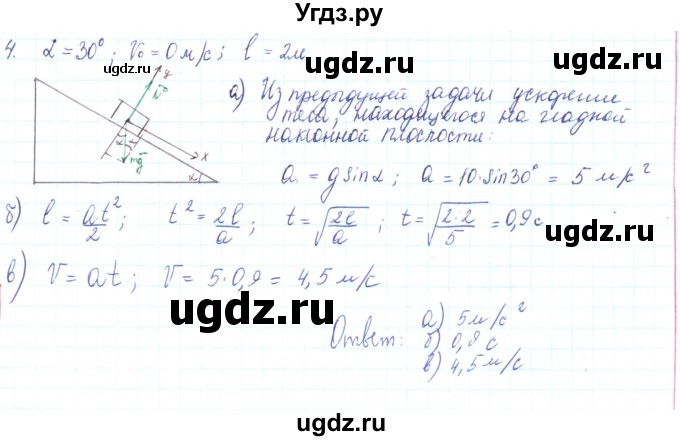 Угдз.ру
4. α = 30°; V₀ = 0 м/с; l = 2м
ugdz.ru ugdz.ru
y
N
а) Из предыдущей задачи ускорение
тела, находящегося на гладкой
наклонной плоскости:
ugdz.ru ugdz.ru
mg
x
α
a = g sinα; a = 10·sin30° = 5 м/с²
б) l = at²/2; t² = 2l/a; t = √(2l/a); t = √(2·2/5) = 0,9 с
ugdz.ru ugdz.ru
в) V = at; V = 5·0,9 = 4,5 м/с
ugdz.ru ugdz.ru
Ответ: а) 5 м/с²
б) 0,9 с
в) 4,5 м/с
ugdz.ru ugdz.ru